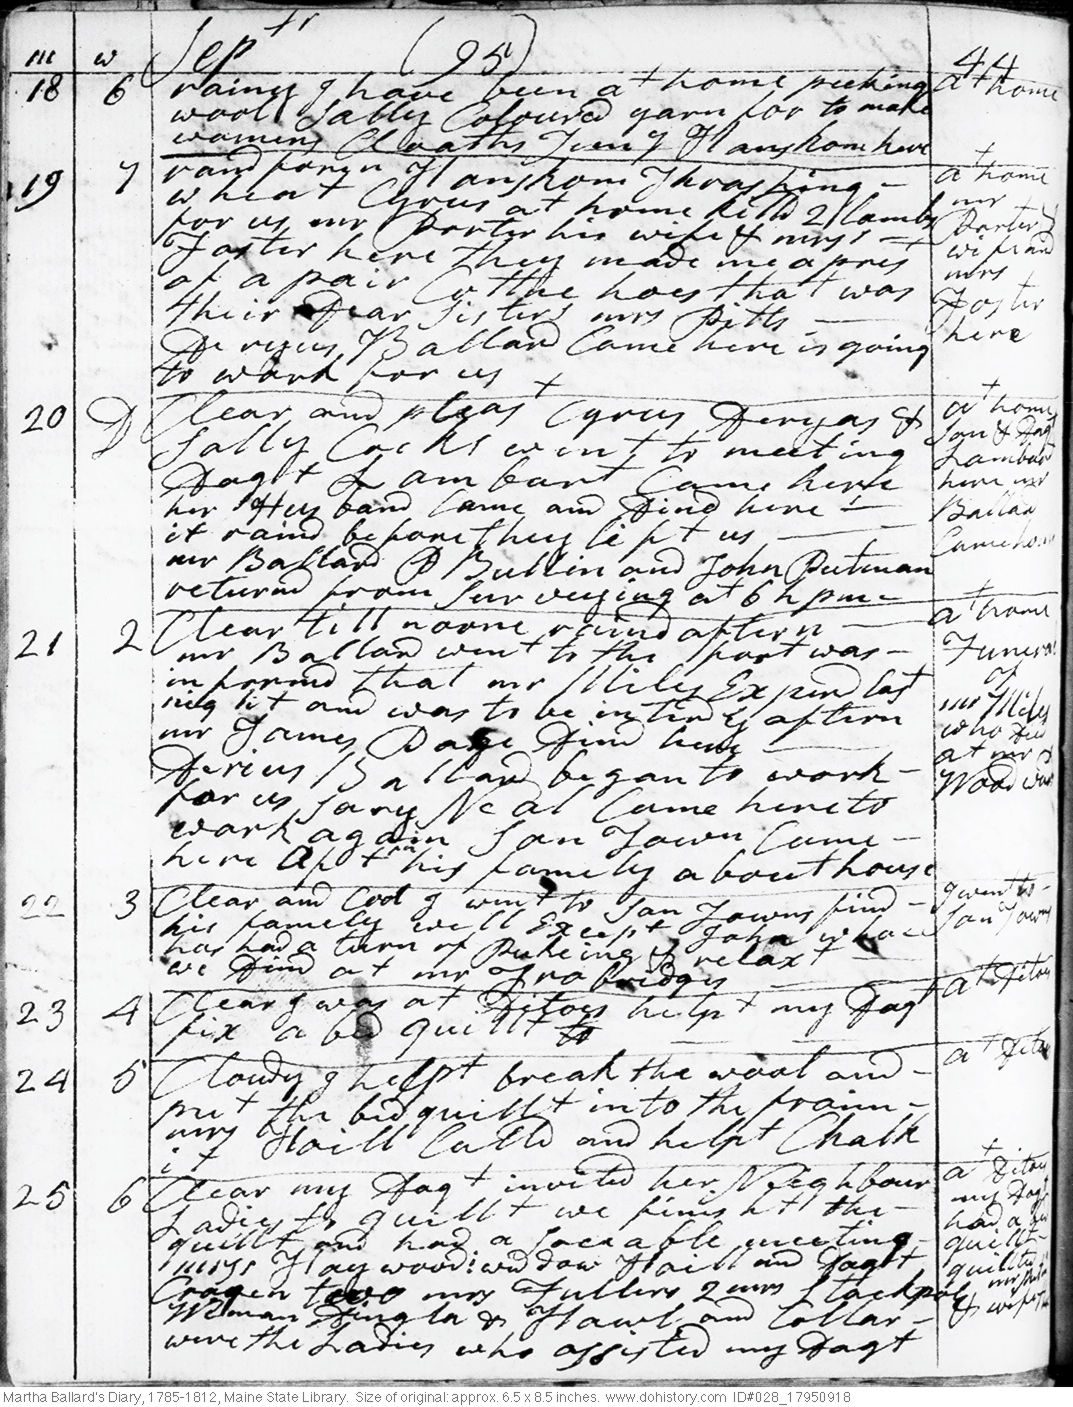 m w Septr (95) 44
18 6 rainy I have been at home pecking at home
wool Sally Coloured yarn for to make
womens Cloaths Juny Hanskom here
19 7 raind foren Hanskom Thrashing – at home
wheat Cyrus at home kild 2 lambs mr
for us mr Porter his wife & mrss – Porter &
Foster here they made me a pres wife and
of a pair Clothe hoes that was mrs
their Dear Sisters mrs Pitts – Foster
Derius Ballard Came here is going here
to work for us
20 D Clear and pleast Cyrus Deryas & at home
Sally Cocks went to meeting Son & Dagt
Dagt Lambart Came here Lambard
her Husband Came and Dind here – here mr
it raind before they left us – Ballard
mr Ballard D Bullin and John Putman Came home
returnd from Surveying at 6 h pm –
21 2 Clear till noone raind aftern – at home
mr Ballard went to the fort was – Funeral
informd that mr Miles Expird last of
night and was to be interd ys aftern mr Miles
mr James Page Dind here – who Died
Derius Ballard began to work – at mr
for us Sary Neal Came here to Woodward
work again Son Town Came –
here aftern his famely about house
22 3 Clear and Cool I went to Son Towns find – I went to –
his famely well Except John who – Son Towns
has had a turn of Pukeing & relaxt –
we Dind at mr Trobridges
23 4 Clear I was at Ditoes helpt my Dagt at Ditoes
fix a bed quillt
24 5 Cloudy I helpt break the wool and – at Ditoes
put the bed quillt into the fraim –
mrs Haill Calld and helpt Chalk
it
25 6 Clear my Dagt invited her Neighbour at Ditoes
Ladies to quillt we finisht the – my Dagt
quillt and had a Sociable meeting – had a
mrss Haywood: widdow Haill and Dagt quillt –
Cragen two mrs Fullers 2 mrs Stackpols
Weman Dingla & Hawl and Collar – & wife
were the Ladies who assisted my Dagt
Martha Ballard's Diary, 1785-1812, Maine State Library. Size of original: approx. 6.5 x 8.5 inches. www.dohistory.com ID#028_17950918